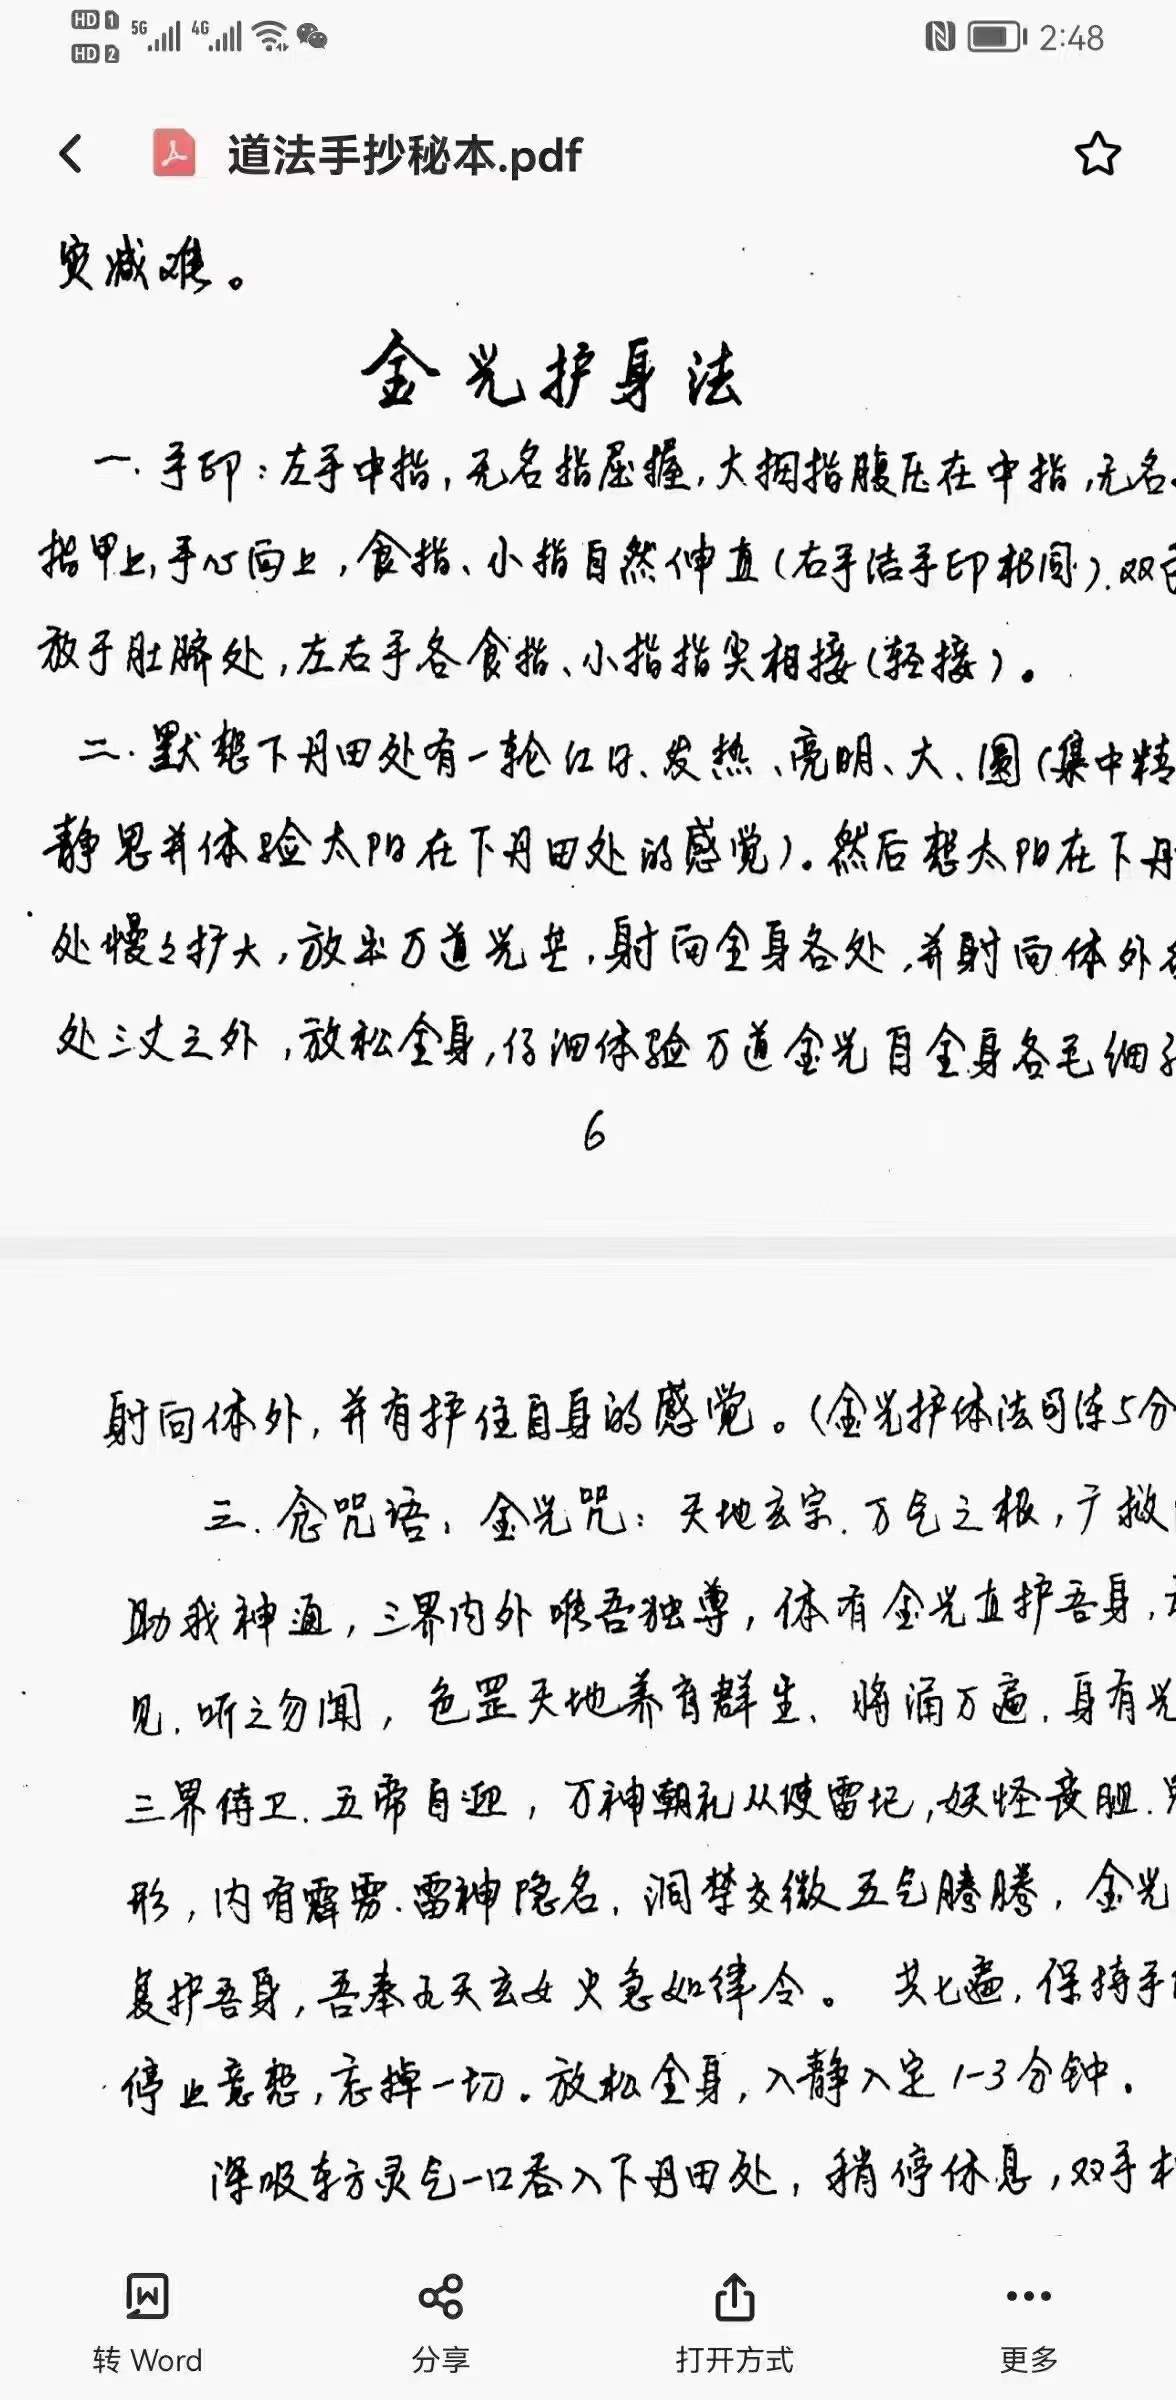 HD 1 5G 4G 2:48
HD 2
道法手抄秘本.pdf
灾减难。
金光护身法
一.手印:左手中指,无名指屈握,大拇指腹压在中指,无名
指甲上,手心向上,食指、小指自然伸直(右手洁手印相同).双
放于肚脐处,左右手各食指、小指指尖相接(轻接)。
二.默想下丹田处有一轮红日、发热、亮明、大、圆(集中精
静思并体验太阳在下丹田处的感觉)。然后想太阳在下丹
处慢々扩大,放出万道光芒,射向全身各处,并射向体外
处三丈之外,放松全身,仔细体验万道金光自全身各毛细
6
射向体外,并有护住自身的感觉。(金光护体法可练5分
三.念咒语,金光咒:天地玄宗.万气之根,广救
助我神通,三界内外唯吾独尊,体有金光直护吾身,
见.听之勿闻,包罡天地养育群生、将涌万遍.身有光
三界侍卫.五帝自迎,万神朝礼从使雷圮,妖怪丧胆.
形,内有霹雳.雷神隐名,洞禁交微五气腾腾,金光
复护吾身,吾奉九天玄女火急如律令。 共七遍,保持手
停止意想,忘掉一切。放松全身,入静入定1-3分钟.
深吸东方灵气一口吞入下丹田处,稍停休息,双手
转 Word 分享 打开方式 更多